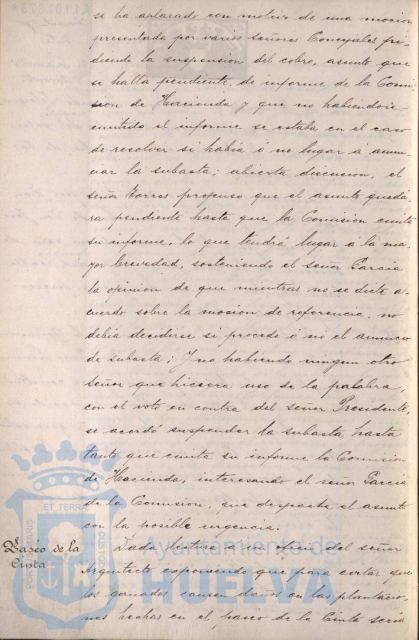 se ha aplazado con motivo de una moción
presentada por varios señores Concejales pi-
diendo la suspensión del cobro, asunto que
se halla pendiente de informe de la Comi-
sion de Hacienda y que no habiendose
emitido el informe se estaba en el caso
de resolver si habia ó no lugar á anun-
ciar la subasta; abierta discusion, el
señor Torres propuso que el asunto queda-
ra pendiente hasta que la Comision emita
su informe, lo que tendrá lugar á la ma-
yor brevedad, sosteniendo el señor Garcia
la opinion de que mientras no se dicte a-
cuerdo sobre la mocion de referencia, no
debia decidirse si procede ó no el anuncio
de subasta; Y no habiendo ningun otro
señor que hiciera uso de la palabra,
con el voto en contra del señor Presidente,
se acordó suspender la subasta hasta
tanto que emita su informe la Comision
de Hacienda, interesando el señor Garcia
de la Comision, que despache el asunto
con la posible urgencia.
Paseo de la
Cinta
Dada lectura á un oficio del señor
Arquitecto exponiendo que para evitar que
los ganados causen daños en las plantacio-
nes hechas en el paseo de la Cinta seria
Ayuntamiento de
HUELVA
PORTUS MARIS
ET TERRAE
CUSTODIA